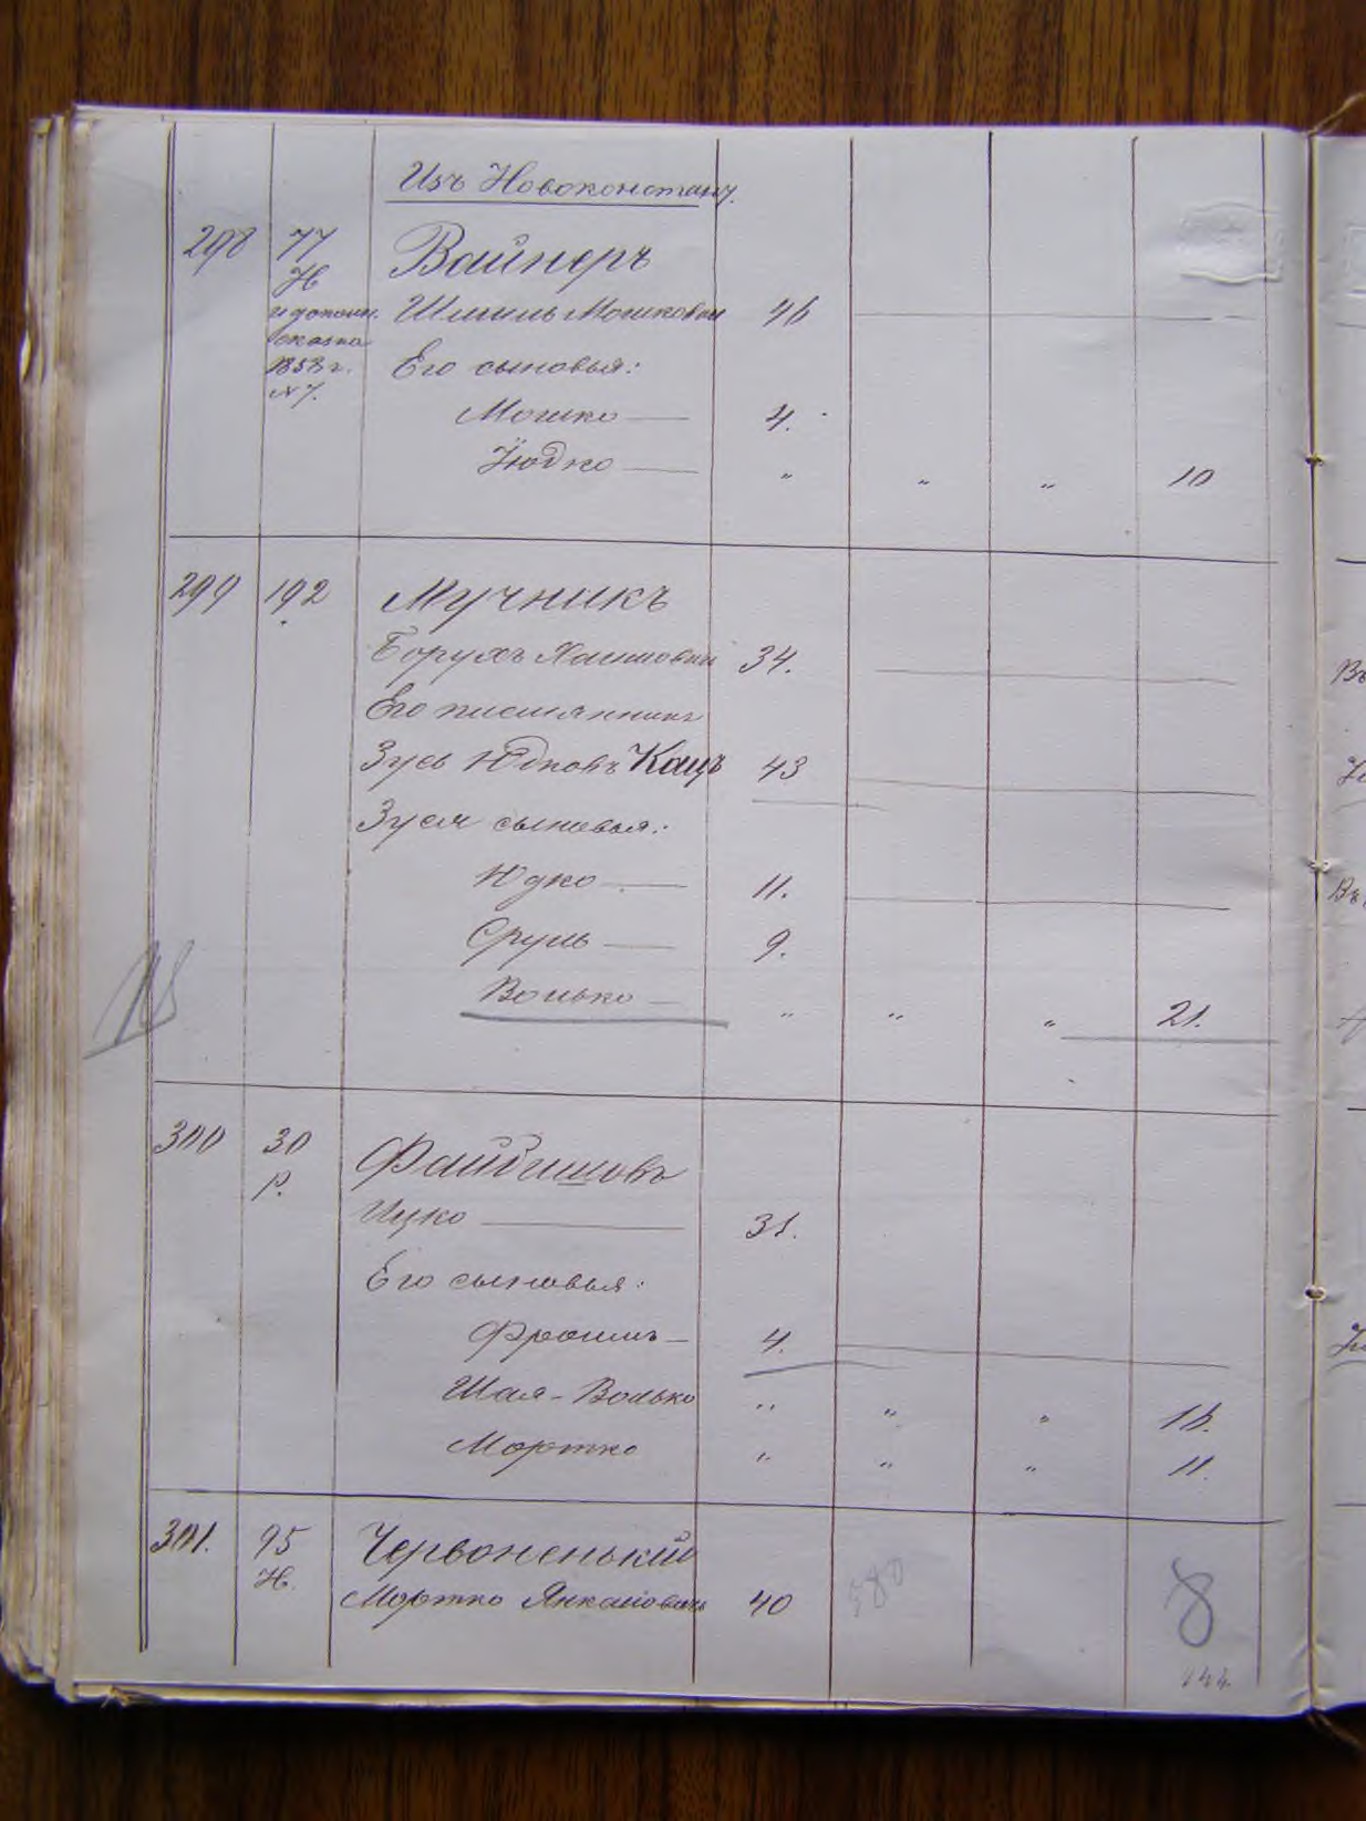 Изъ Новоконстант.
298 77 Вайнеръ
Н
и дополн. Шмиль Мошковъ 46
сказка
1858 г. Его сыновья:
№ 7. Мошко — 4.
Іюдко — " " " 10
299 192 Мучникъ
Борухъ Хаимовъ 34.
Его племянникъ
Зусь Юдковъ Кацъ 43
Зуся сыновья:
Юдко — 11.
Сруль — 9.
Волько — " " " 21.
18
300 30 Файбишовъ
р.
Ицко — 31.
Его сыновья:
Фроимъ — 4.
Шая-Волько " " " 16.
Мортко " " " 11.
301. 95 Червоненькій
Н.
Мортко Янкелевичъ 40
380
8